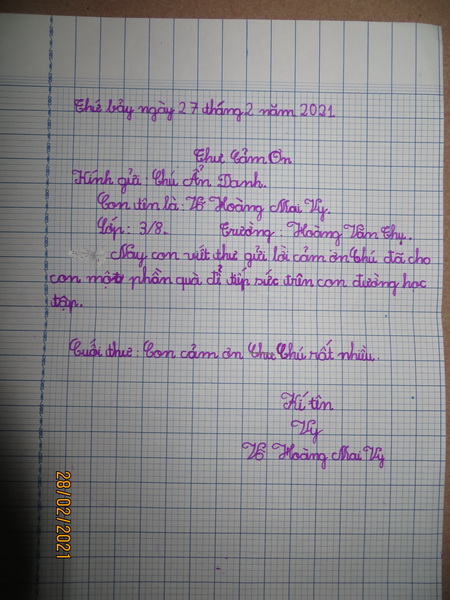 Thứ bảy ngày 27 tháng 2 năm 2021
Thư Cảm Ơn
Kính gửi: Chú Ẩn Danh.
Con tên là: Võ Hoàng Mai Vy.
Lớp: 3/8. Trường: Hoàng Văn Thụ.
Nay con viết thư gửi lời cảm ơn Chú đã cho
con một phần quà để tiếp sức trên con đường học
tập.
Cuối thư: Con cảm ơn Chú rất nhiều.
Kí tên
Vy
Võ Hoàng Mai Vy
28/02/2021